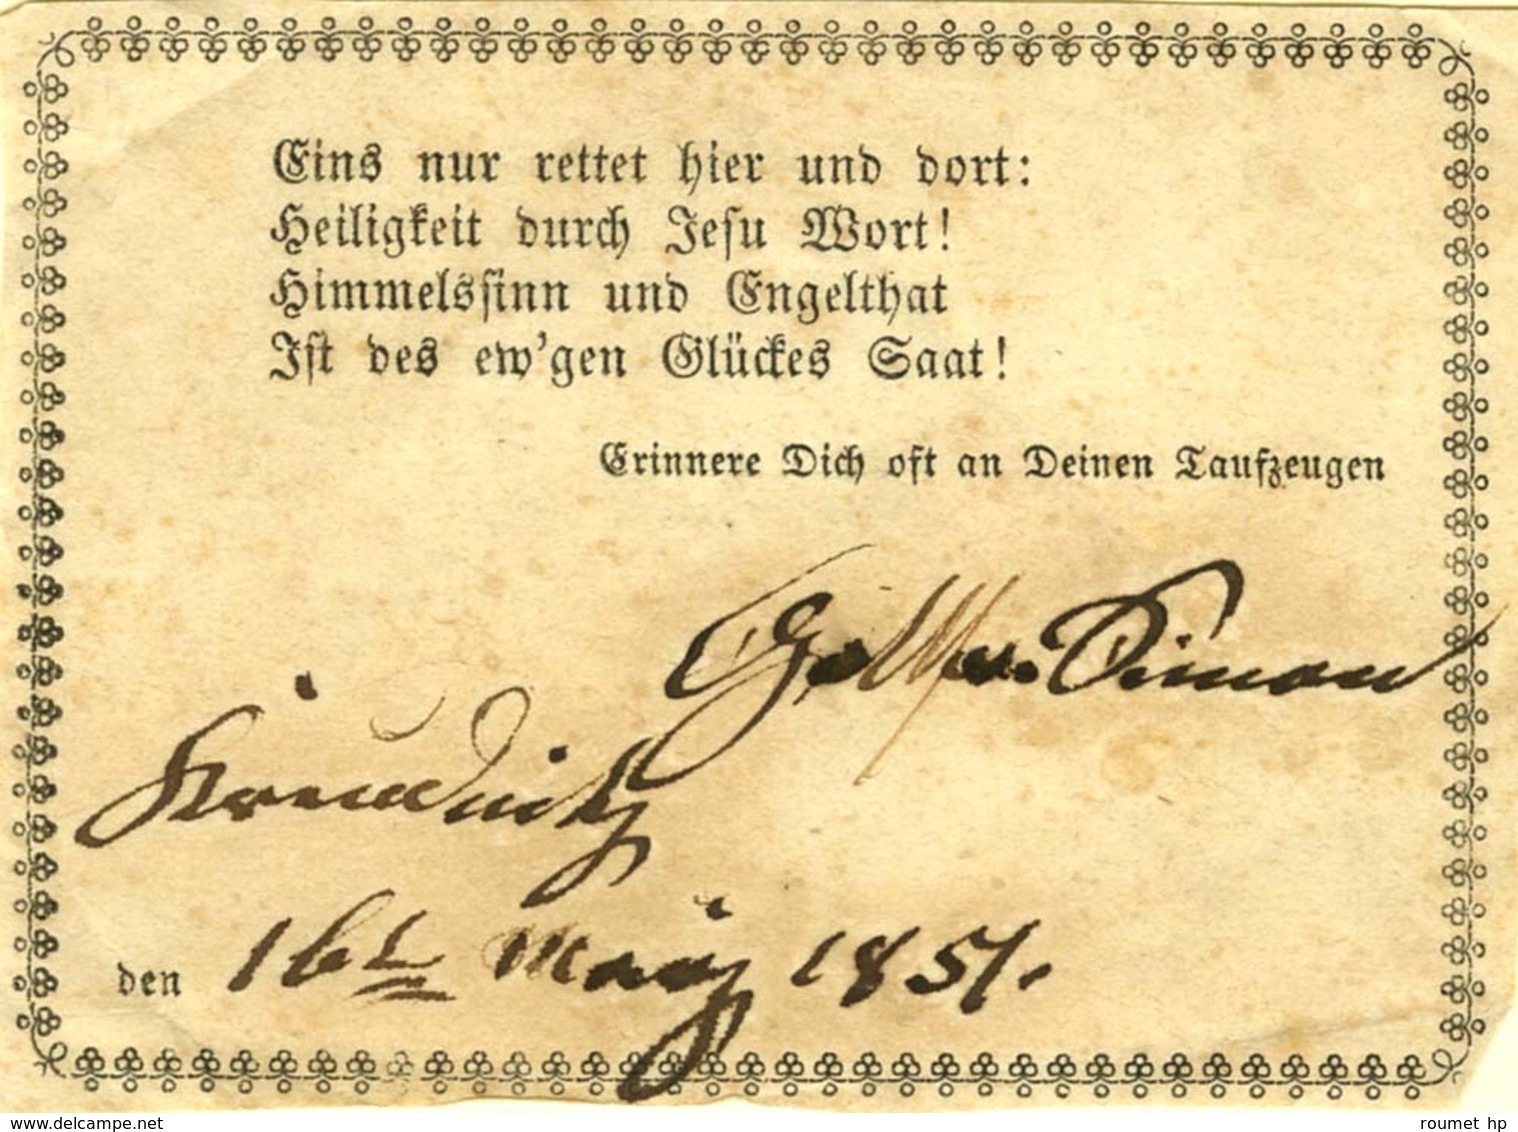 Eins nur rettet hier und dort:
Heiligkeit durch Jesu Wort!
Himmelssinn und Engelthat
Ist des ew'gen Glückes Saat!
Erinnere Dich oft an Deinen Taufzeugen
Simon
den 16t 1851.
www.delcampe.net
roumet hp